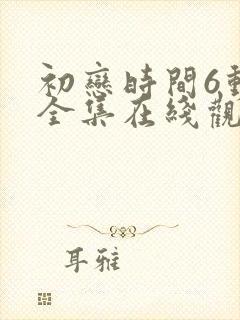 初戀時間6動
全集在綫觀
耳雅